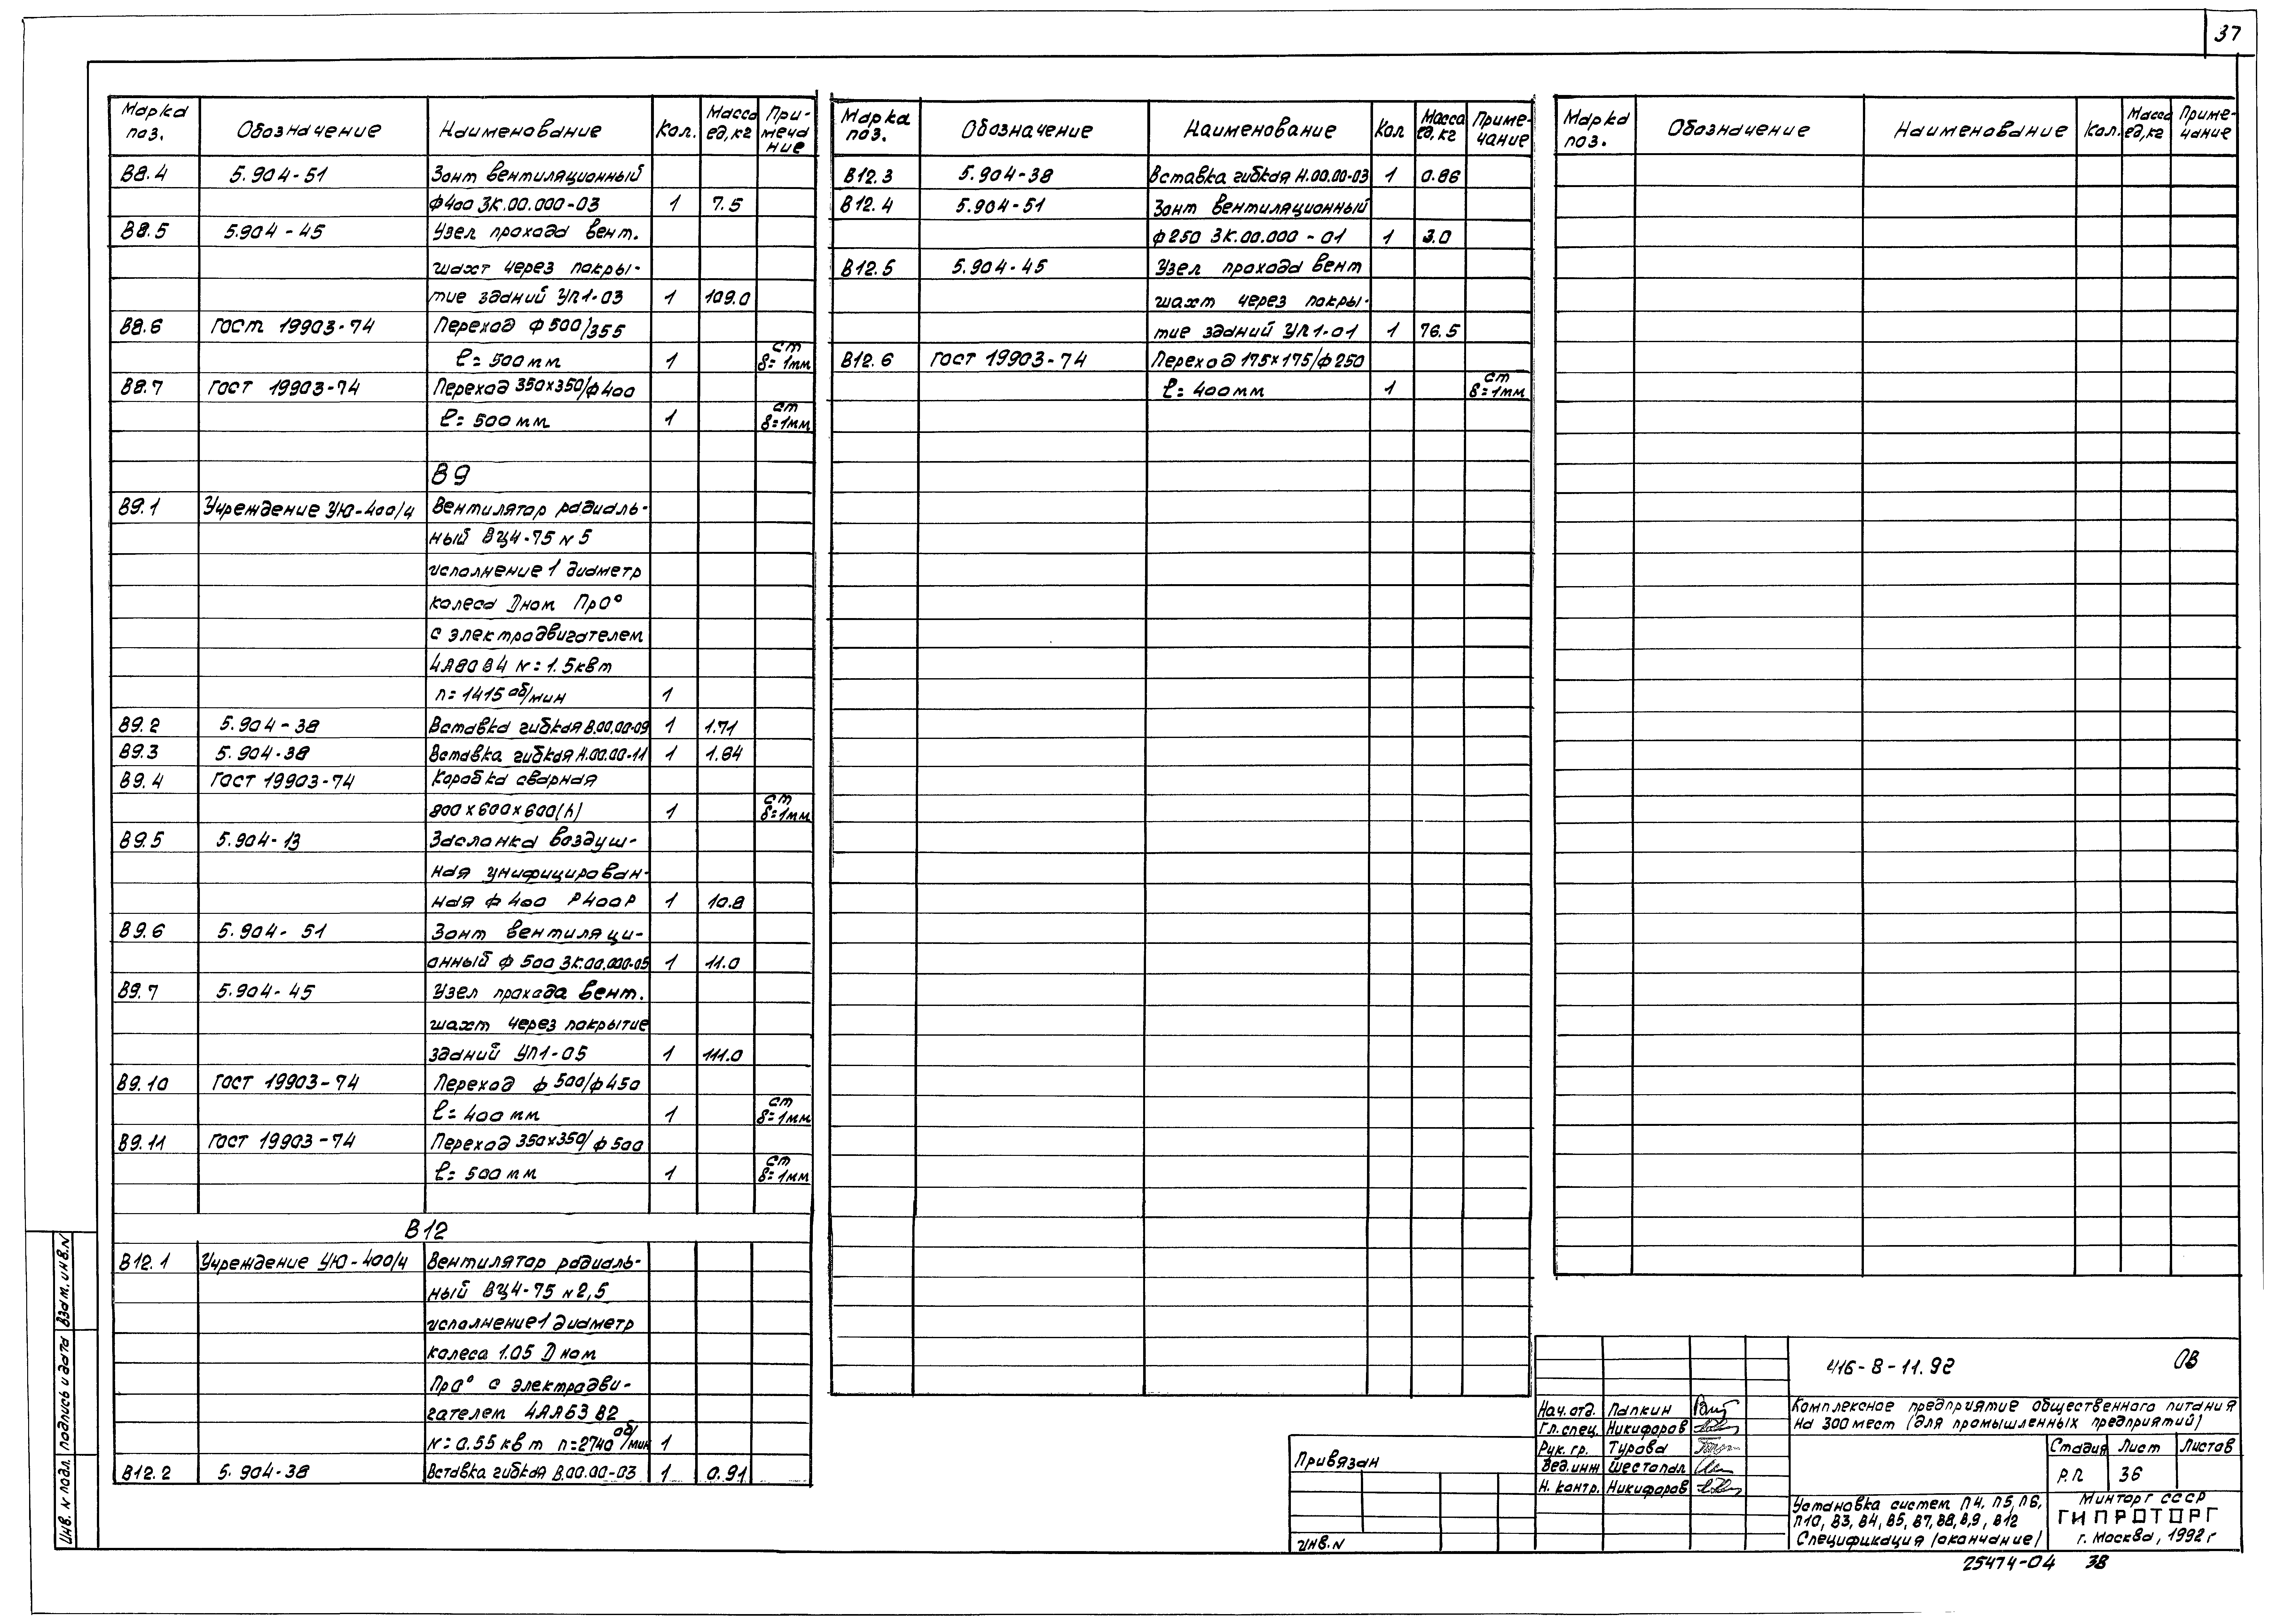 37
Марка поз. Обозначение Наименование Кол. Масса ед,кг Примечание
В8.4 5.904-51 Зонт вентиляционный
ф400 ЗК.00.000-03 1 7.5
В8.5 5.904-45 Узел прохода вент.
шахт через покры-
тие зданий УП1-03 1 109.0
В8.6 ГОСТ 19903-74 Переход ф500/355
ℓ=500мм 1 ст δ=1мм
В8.7 ГОСТ 19903-74 Переход 350х350/ф400
ℓ=500мм 1 ст δ=1мм
В9
В9.1 Учреждение УЮ-400/4 Вентилятор радиаль-
ный ВЦ4-75 N5
исполнение 1 диаметр
колеса Dном Пр0°
с электродвигателем
4А80В4 N=1.5кВт
n=1415 об/мин 1
В9.2 5.904-38 Вставка гибкая В.00.00-09 1 1.71
В9.3 5.904-38 Вставка гибкая Н.00.00-11 1 1.64
В9.4 ГОСТ 19903-74 Коробка сварная
800х600х600(h) 1 ст δ=1мм
В9.5 5.904-13 Заслонка воздуш-
ная унифицирован-
ная ф400 Р400Р 1 10.8
В9.6 5.904-51 Зонт вентиляци-
онный ф500 ЗК.00.000-05 1 11.0
В9.7 5.904-45 Узел прохода вент.
шахт через покрытие
зданий УП1-05 1 111.0
В9.10 ГОСТ 19903-74 Переход ф500/ф450
ℓ=400мм 1 ст δ=1мм
В9.11 ГОСТ 19903-74 Переход 350х350/ф500
ℓ=500мм 1 ст δ=1мм
В12
В12.1 Учреждение УЮ-400/4 Вентилятор радиаль-
ный ВЦ4-75 N2,5
исполнение 1 диаметр
колеса 1.05 Dном
Пр0° с электродви-
гателем 4АА63В2
N=0.55кВт n=2740 об/мин 1
В12.2 5.904-38 Вставка гибкая В.00.00-03 1 0.91
Марка поз. Обозначение Наименование Кол Масса ед,кг Примечание
В12.3 5.904-38 Вставка гибкая Н.00.00-03 1 0.86
В12.4 5.904-51 Зонт вентиляционный
ф250 ЗК.00.000-01 1 3.0
В12.5 5.904-45 Узел прохода вент
шахт через покры-
тие зданий УП1-01 1 76.5
В12.6 ГОСТ 19903-74 Переход 175х175/ф250
ℓ=400мм 1 ст δ=1мм
Марка поз. Обозначение Наименование Кол. Масса ед,кг Примечание
Инв. N подл. Подпись и дата Взам. инв. N
Привязан
Инв. N
416-8-11.92 ОВ
Нач. отд. Папкин
Гл. спец. Никифоров
Рук. гр. Турова
Вед. инж Шестопал
Н. контр. Никифоров
Комплексное предприятие общественного питания
на 300 мест (для промышленных предприятий)
Стадия Лист Листов
Р.П 36
Установка систем П4, П5, П6,
П10, В3, В4, В5, В7, В8, В,9, В12
Спецификация (окончание)
Минторг СССР
ГИПРОТОРГ
г. Москва, 1992г
25474-04 38